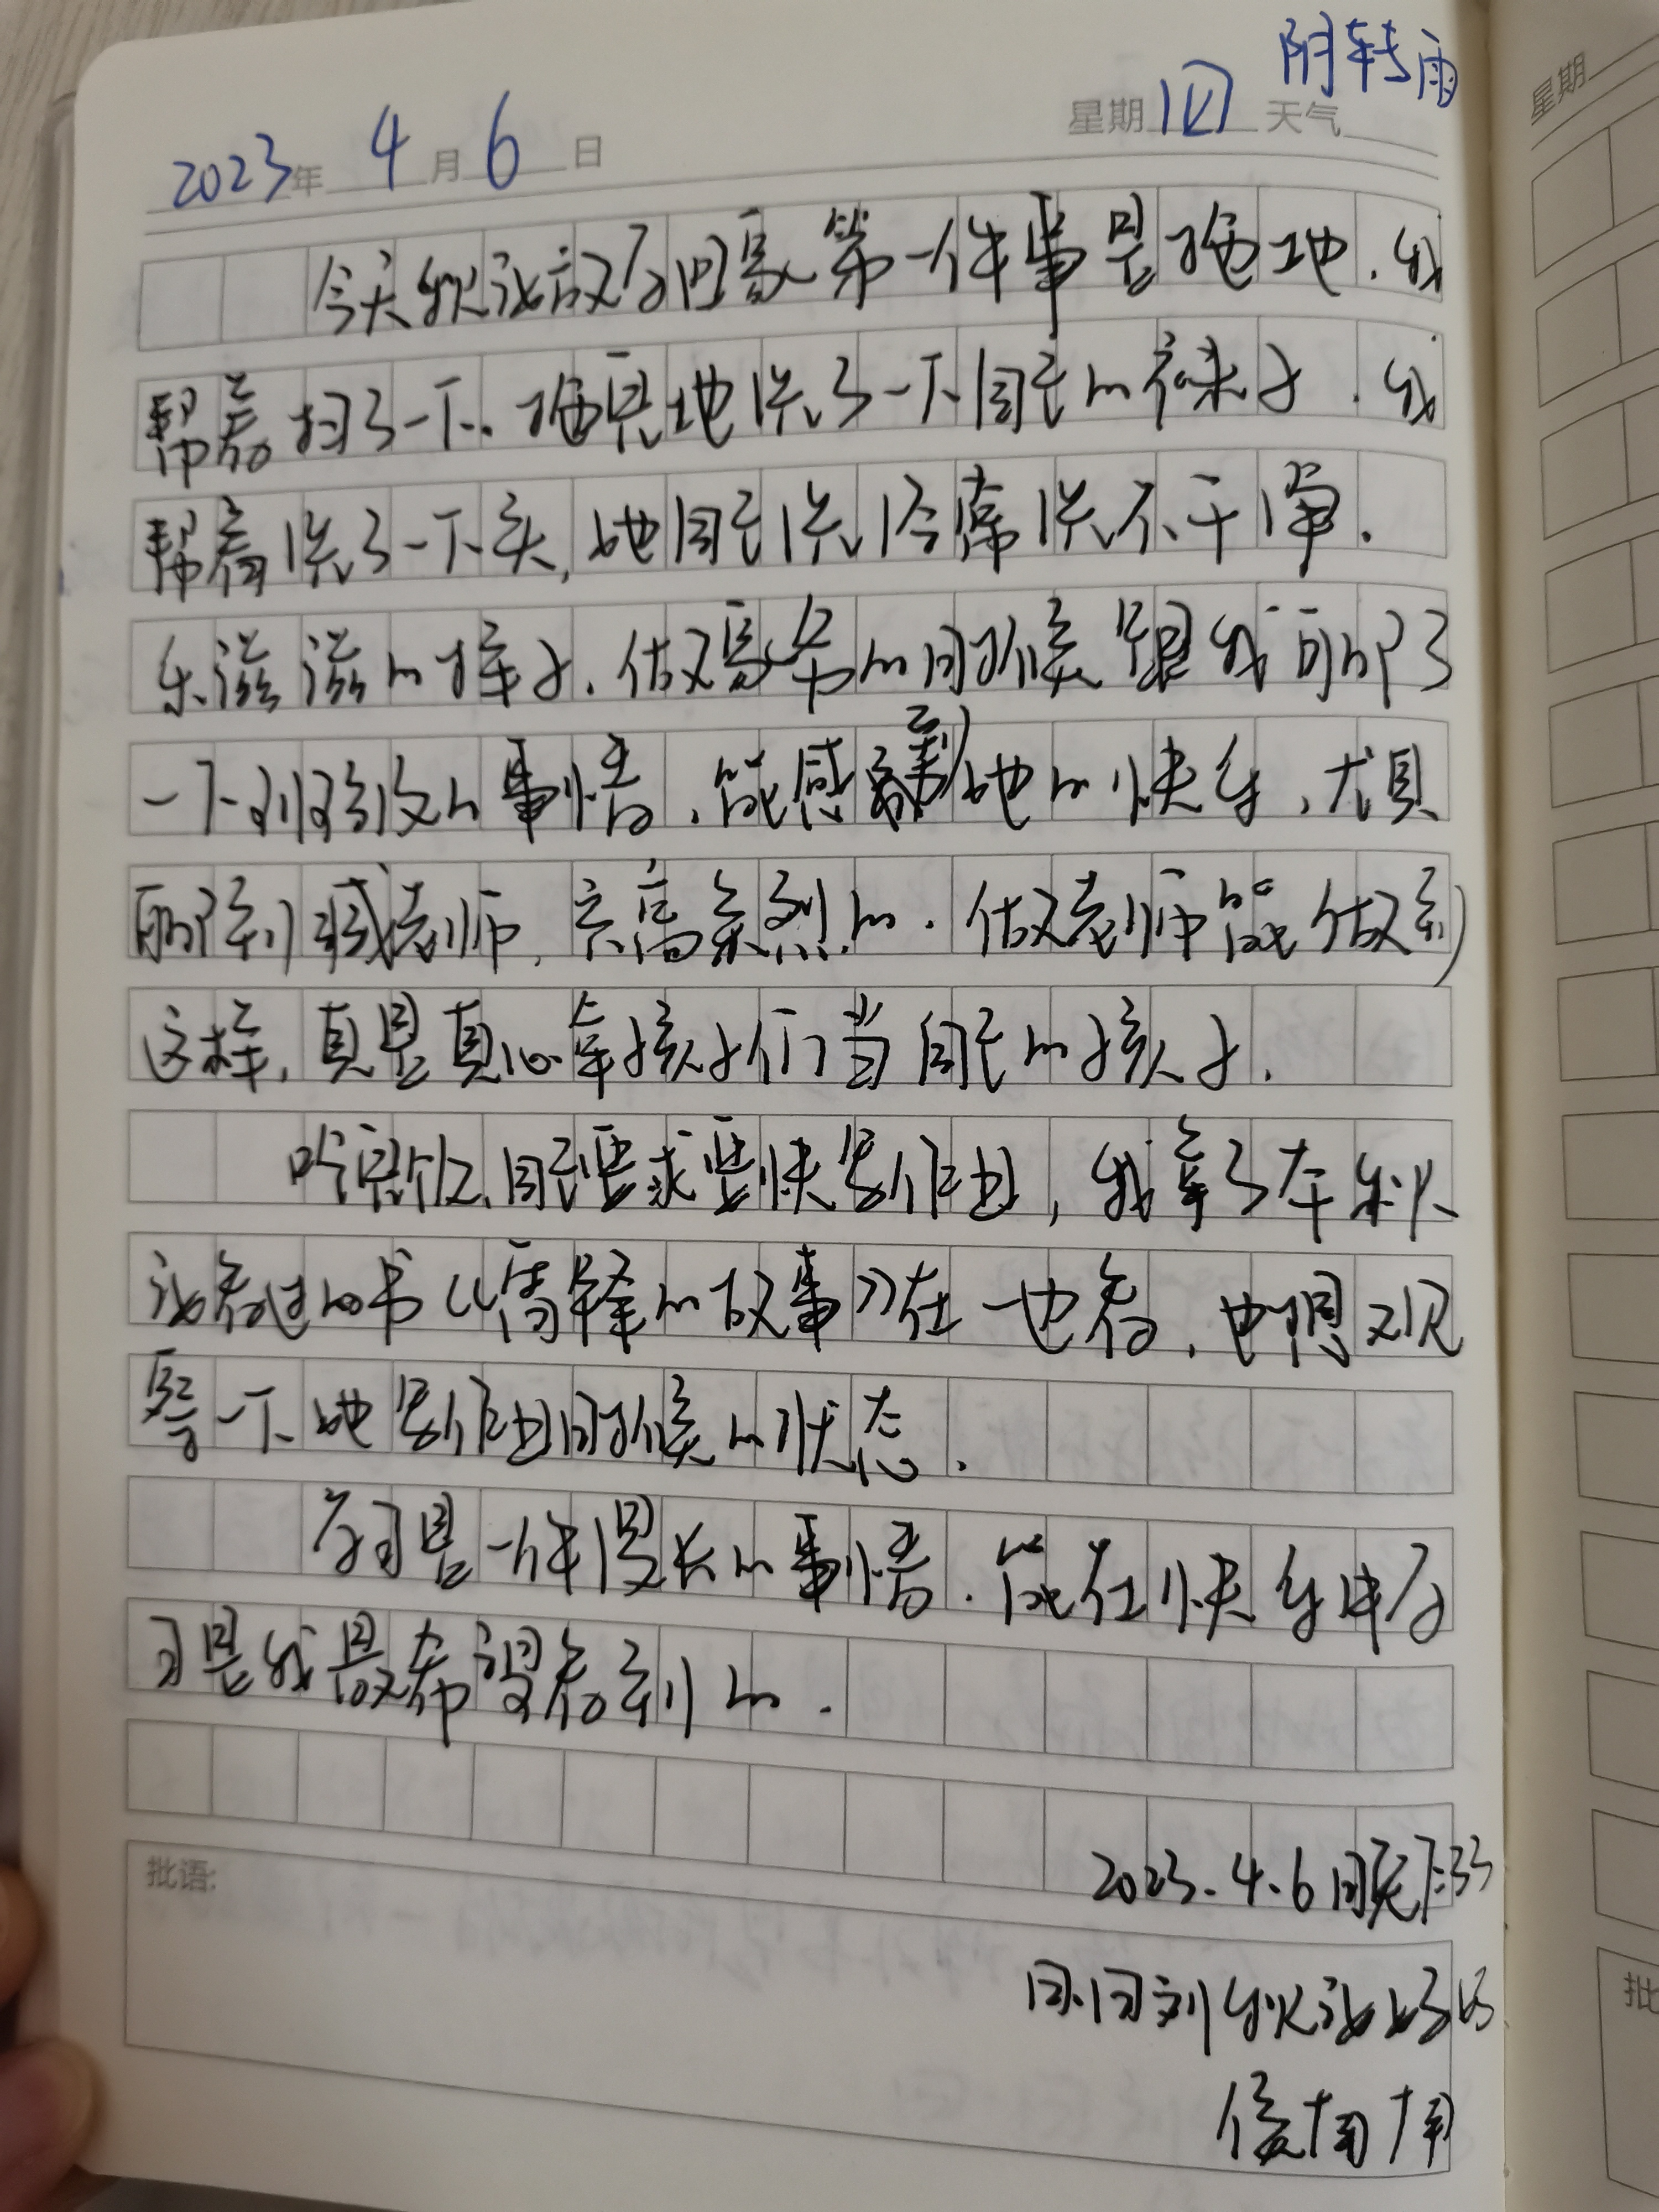 阴转雨
2023年 4 月 6 日 星期 四 天气
今天秋泓放学回家第一件事是拖地.我
帮着扫了一下.拖完地洗了一下自己的袜子.我
帮着洗了一下头,她自己洗经常洗不干净.
乐滋滋的样子.做家务的时候跟我聊了
一下学校的事情.能感觉到她的快乐,尤其
聊到戚老师,兴高采烈的.做老师能做到
这样,真是真心拿孩子们当自己的孩子.
吃完饭,自己要求要快写作业,我拿了本秋
泓看过的书《雷锋的故事》在一边看,也想观
察一下她写作业时候的状态.
学习是一件漫长的事情.能在快乐中学
习是我最希望看到的.
批语:
2023.4.6 晚7:33
刘秋泓妈妈
侯楠楠
星期
批